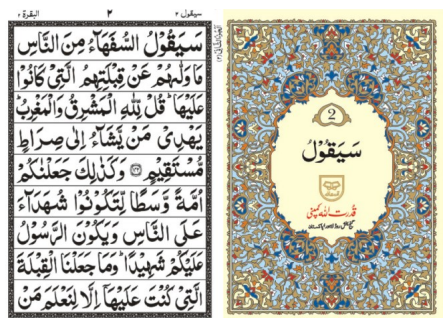 سيقول ٢
٢
البقرة ٢
سَيَقُوْلُ السُّفَهَآءُ مِنَ النَّاسِ
مَا وَلّٰىهُمْ عَنْ قِبْلَتِهِمُ الَّتِیْ كَانُوْا
عَلَیْهَا ؕ قُلْ لِّلّٰهِ الْمَشْرِقُ وَالْمَغْرِبُ ؕ
یَهْدِیْ مَنْ یَّشَآءُ اِلٰی صِرَاطٍ
مُّسْتَقِیْمٍ ﴿۱۴۲﴾ وَكَذٰلِكَ جَعَلْنٰكُمْ
اُمَّةً وَّسَطًا لِّتَكُوْنُوْا شُهَدَآءَ
عَلَی النَّاسِ وَیَكُوْنَ الرَّسُوْلُ
عَلَیْكُمْ شَهِیْدًا ؕ وَمَا جَعَلْنَا الْقِبْلَةَ
الَّتِیْ كُنْتَ عَلَیْهَاۤ اِلَّا لِنَعْلَمَ مَنْ
2
سَيَقُوْلُ
قدرت اللہ کمپنی